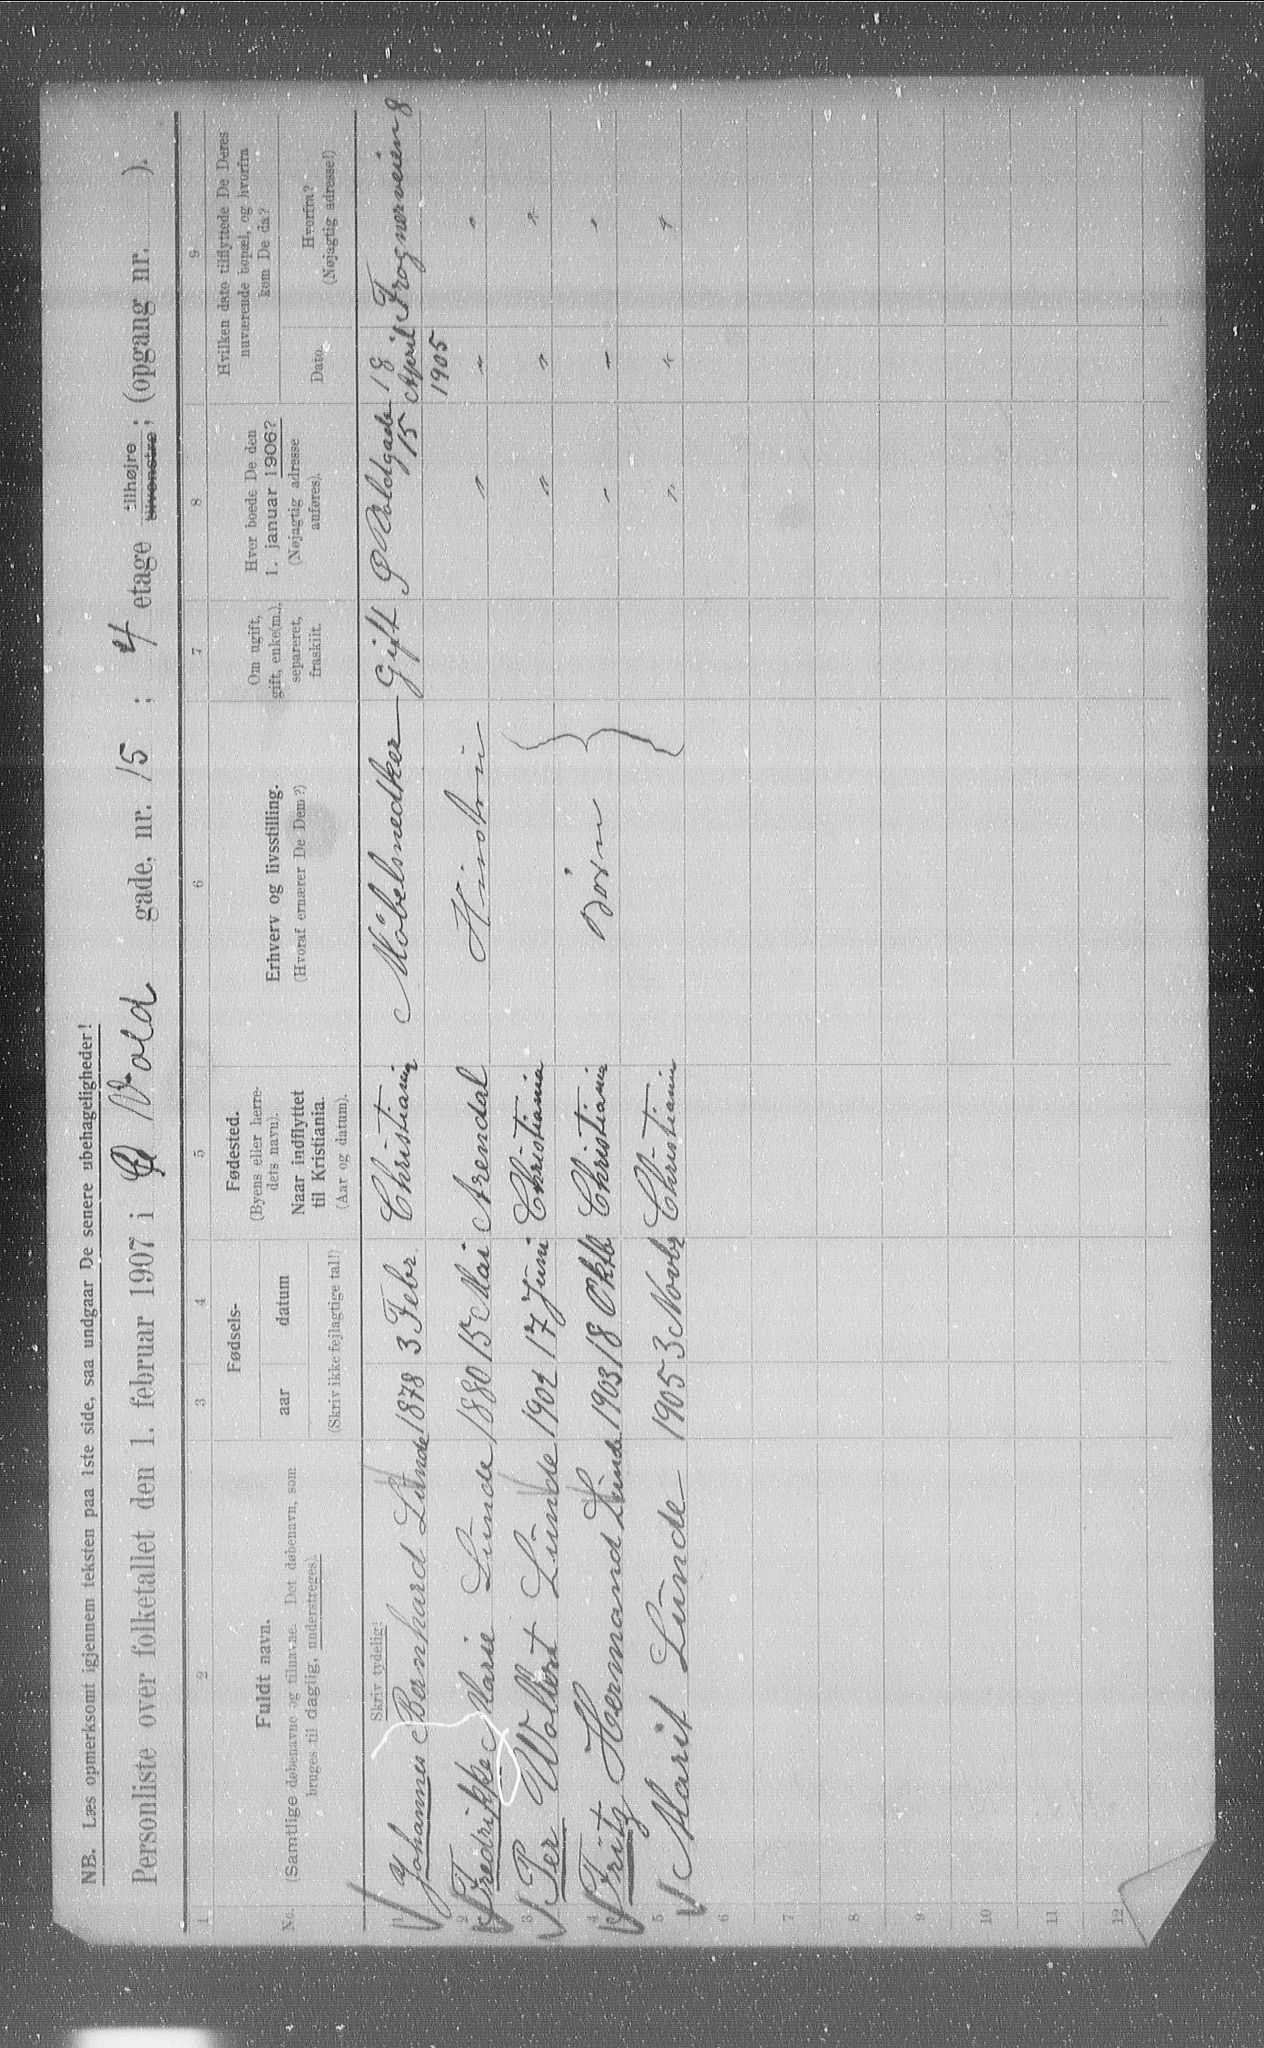 NB. Læs opmerksomt igjennem teksten paa 1ste side, saa undgaar De senere ubehageligheder!
Personliste over folketallet den 1. februar 1907 i Ø Vold gade, nr. 15 ; 4 etage tilhøjre tilvenstre; (opgang nr. ).
1 2 3 4 5 6 7 8 9
No. Fuldt navn. (Samtlige døbenavne og tilnavne. Det døbenavn, som bruges til daglig, understreges). Fødsels- aar datum (Skriv ikke fejlagtige tal!) Fødested. (Byens eller herredets navn). Naar indflyttet til Kristiania. (Aar og datum). Erhverv og livsstilling. (Hvoraf ernærer De Dem?) Om ugift, gift, enke(m.), separeret, fraskilt. Hvor boede De den 1. januar 1906? (Nøjagtig adresse anføres). Hvilken dato tilflyttede De Deres nuværende bopæl, og hvorfra kom De da? Dato. Hvorfra? (Nøjagtig adresse!)
Skriv tydelig:
1 Johannes Bernhard Lunde 1878 3 Febr. Christiania Möbelsnedker gift Ø Voldgade 15 18 April 1905 Frognerveien 8
2 Fredrikke Marie Lunde 1880 15 Mai Arendal Hustru " " "
3 Per Wollert Lunde 1902 17 Juni Christiania " " "
4 Fritz Hermand Lunde 1903 18 Oktb Christiania Børn " " "
5 Marit Lunde 1905 3 Novbr Christiania " " "
6
7
8
9
10
11
12